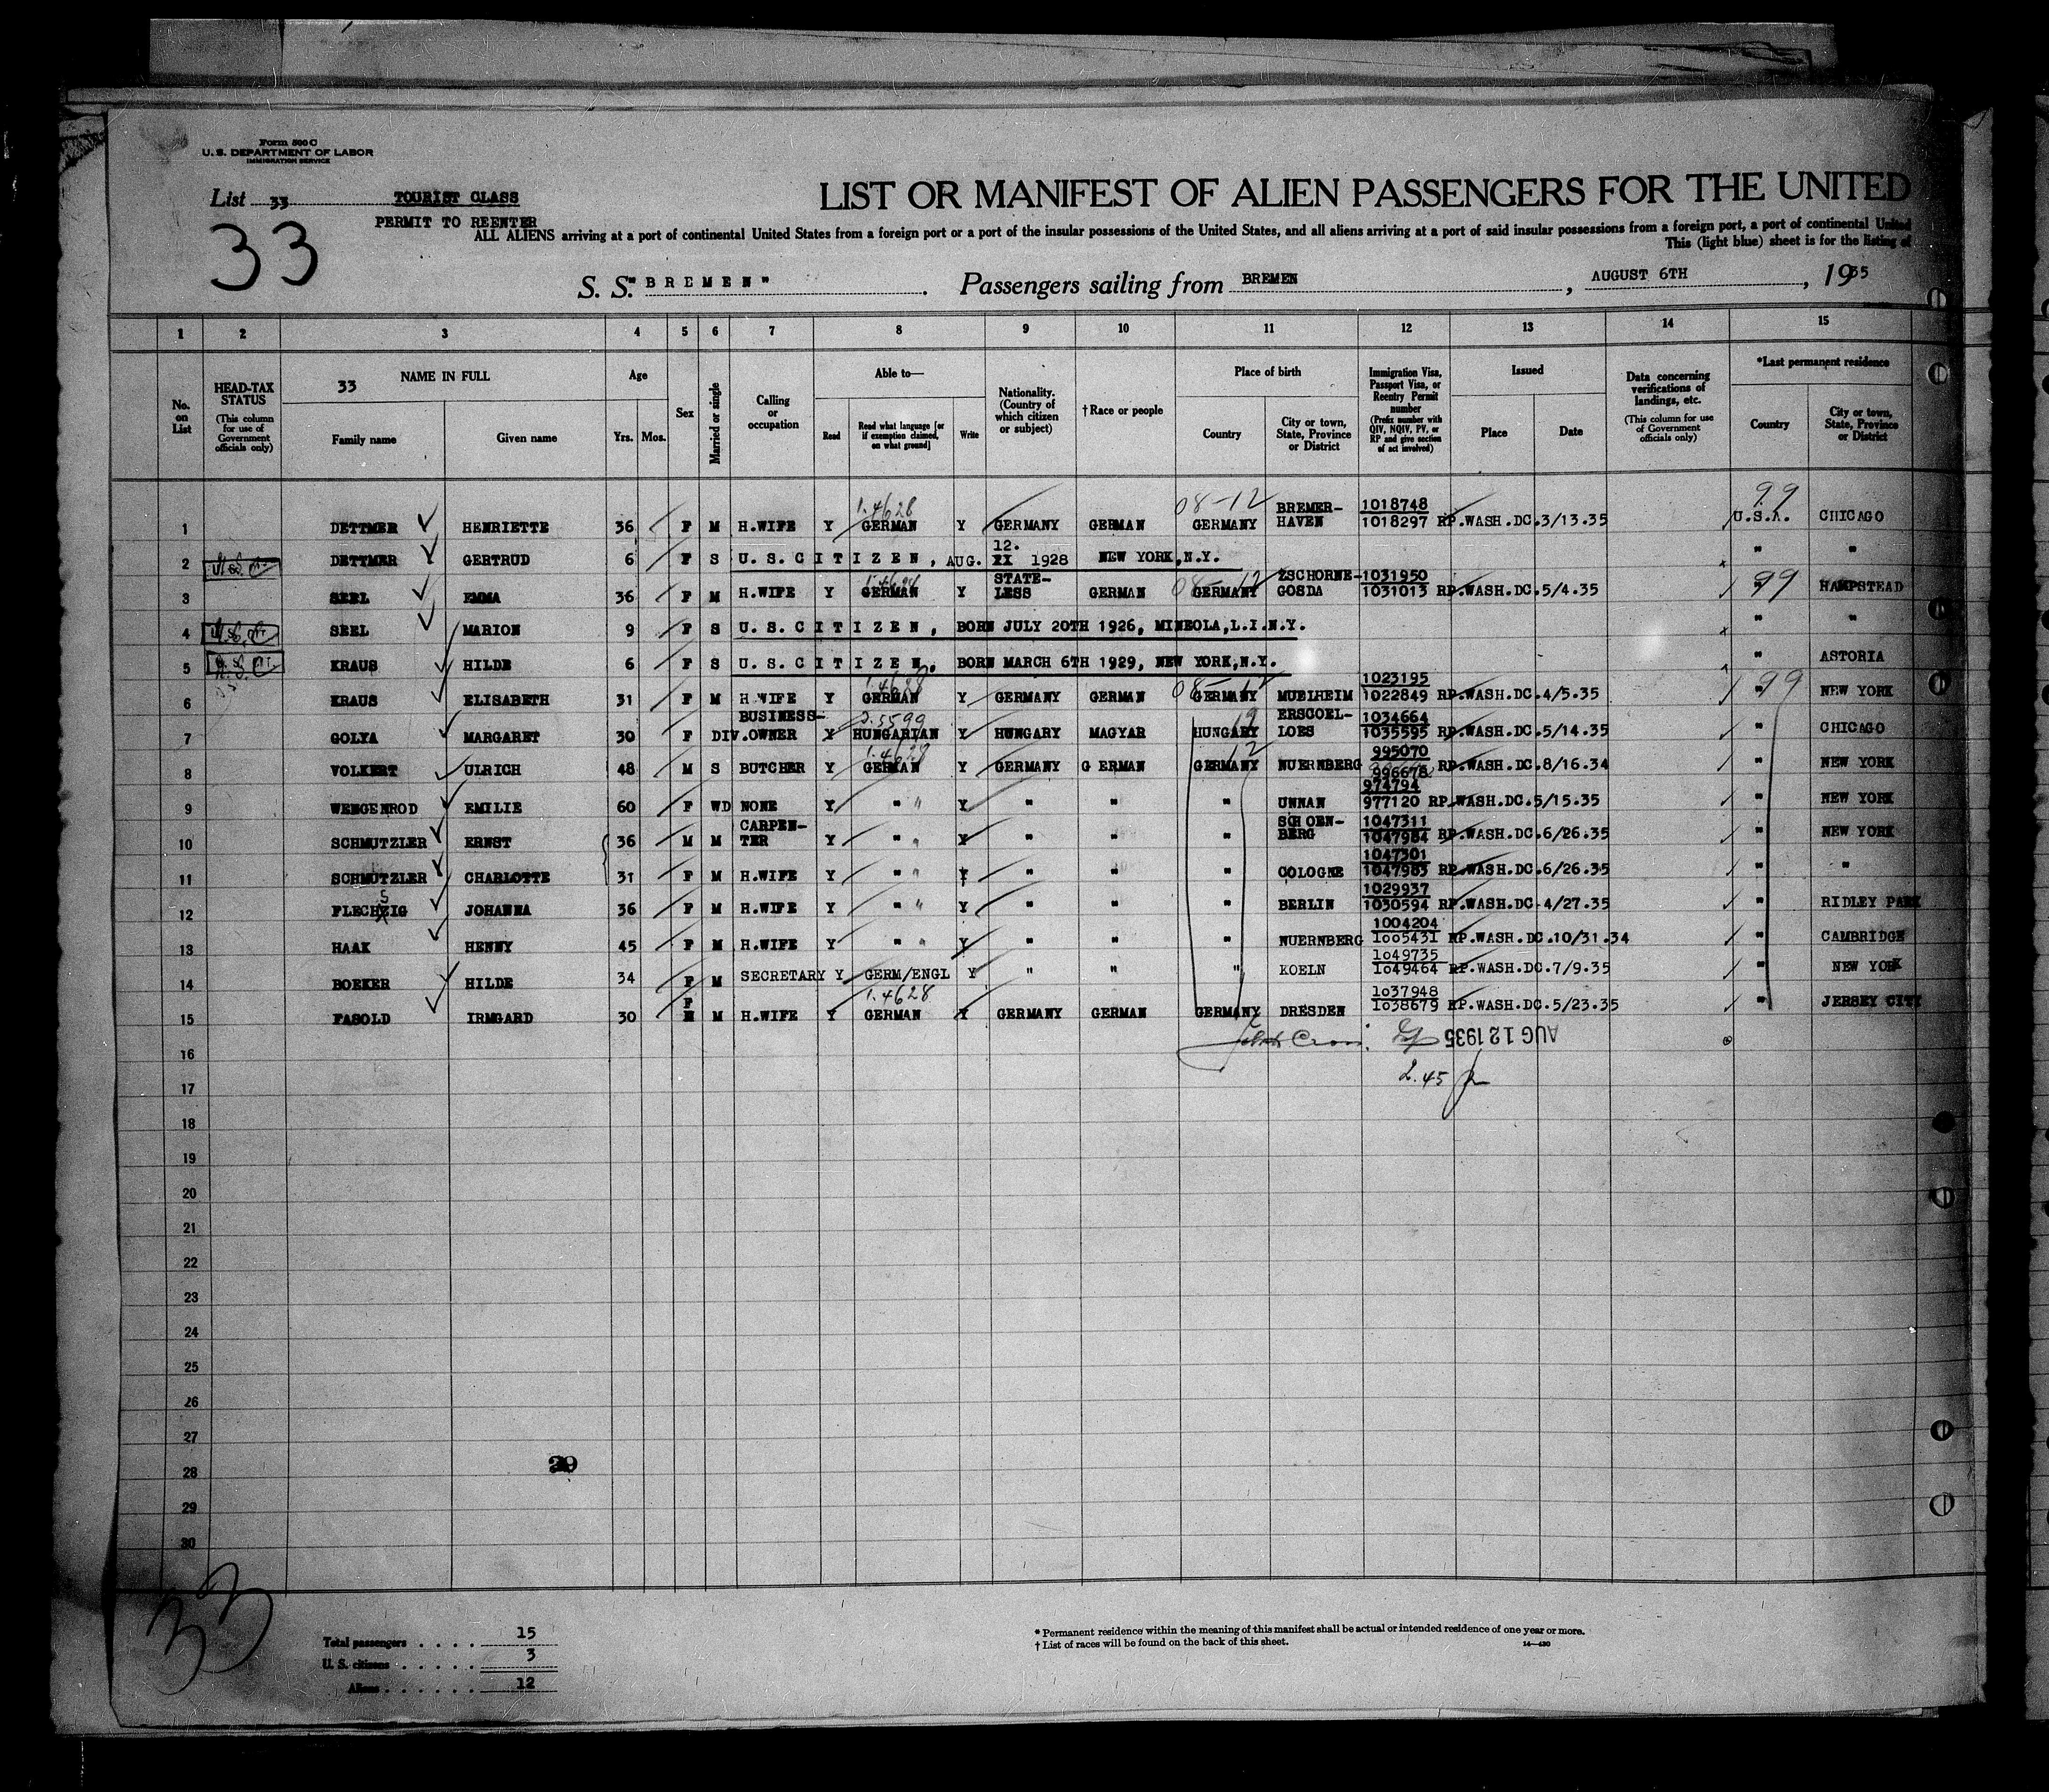 Form 500 C
U. S. DEPARTMENT OF LABOR
IMMIGRATION SERVICE
List 33 TOURIST CLASS
PERMIT TO REENTER
33
LIST OR MANIFEST OF ALIEN PASSENGERS FOR THE UNITED
ALL ALIENS arriving at a port of continental United States from a foreign port or a port of the insular possessions of the United States, and all aliens arriving at a port of said insular possessions from a foreign port, a port of continental United
This (light blue) sheet is for the listing of
S. S. "BREMEN" . Passengers sailing from BREMEN , AUGUST 6TH , 1935
1 2 3 4 5 6 7 8 9 10 11 12 13 14 15
No. on List
HEAD-TAX STATUS (This column for use of Government officials only)
33 NAME IN FULL
Family name Given name
Age
Yrs. Mos.
Sex
Married or single
Calling or occupation
Able to—
Read Read what language [or if exemption claimed, on what ground] Write
Nationality. (Country of which citizen or subject)
† Race or people
Place of birth
Country City or town, State, Province or District
Immigration Visa, Passport Visa, or Reentry Permit number (Prefix number with QIV, NQIV, PV, or RP and give section of act involved)
Issued
Place Date
Data concerning verifications of landings, etc. (This column for use of Government officials only)
*Last permanent residence
Country City or town, State, Province or District
1 DETTMER HENRIETTE 36 F M H.WIFE Y 1.4628 GERMAN Y GERMANY GERMAN 08-12 GERMANY BREMER-HAVEN 1018748 1018297 RP.WASH.DC.3/13.35 99 U.S.A. CHICAGO
2 DETTMER GERTRUD 6 F S U.S.CITIZEN, AUG. 12. XX 1928 NEW YORK,N.Y. " "
3 SEEL EMMA 36 F M H.WIFE Y GERMAN Y STATE-LESS GERMAN 08-12 GERMANY ZSCHORNE-GOSDA 1031950 1031013 RP.WASH.DC.5/4.35 " 99 HAMPSTEAD
4 SEEL MARION 9 F S U.S.CITIZEN, BORN JULY 20TH 1926, MINEOLA,L.I.N.Y. " "
5 KRAUS HILDE 6 F S U.S.CITIZEN, BORN MARCH 6TH 1929, NEW YORK,N.Y. " ASTORIA
6 KRAUS ELISABETH 31 F M H.WIFE Y GERMAN Y GERMANY GERMAN 08-12 GERMANY MUELHEIM 1023195 1022849 RP.WASH.DC.4/5.35 " 99 NEW YORK
7 GOLYA MARGARET 30 F DIV. BUSINESS-OWNER Y 2.5599 HUNGARIAN Y HUNGARY MAGYAR HUNGARY 19 ERSCOEL-LOES 1034664 1035595 RP.WASH.DC.5/14.35 " CHICAGO
8 VOLKERT ULRICH 48 M S BUTCHER Y 1.4628 GERMAN Y GERMANY G ERMAN 12 GERMANY NUERNBERG 995070 996678 RP.WASH.DC.8/16.34 " NEW YORK
9 WENGENROD EMILIE 60 F WD NONE Y " " Y " " " UNNAN 974794 977120 RP.WASH.DC.5/15.35 " NEW YORK
10 SCHMUTZLER ERNST 36 M M CARPEN-TER Y " " Y " " " SCHOEN-BERG 1047311 1047984 RP.WASH.DC.6/26.35 " NEW YORK
11 SCHMUTZLER CHARLOTTE 31 F M H.WIFE Y " " Y " " " COLOGNE 1047301 1047983 RP.WASH.DC.6/26.35 " "
12 FLECHSIG JOHANNA 36 F M H.WIFE Y " " Y " " " BERLIN 1029937 1030594 RP.WASH.DC.4/27.35 " RIDLEY PARK
13 HAAK HENNY 45 F M H.WIFE Y " " Y " " " NUERNBERG 1004204 1005431 RP.WASH.DC.10/31.34 " CAMBRIDGE
14 BOEKER HILDE 34 F M SECRETARY Y GERM/ENGL Y " " " KOELN 1049735 1049464 RP.WASH.DC.7/9.35 " NEW YORK
15 FASOLD IRMGARD 30 F M H.WIFE Y 1.4628 GERMAN Y GERMANY GERMAN GERMANY DRESDEN 1037948 1038679 RP.WASH.DC.5/23.35 " JERSEY CITY
16 AUG 12 1935
17 2.45
18
19
20
21
22
23
24
25
26
27
28
29
30
33
Total passengers . . . . 15
U. S. citizens . . . . . 3
Aliens . . . . . . 12
* Permanent residence within the meaning of this manifest shall be actual or intended residence of one year or more.
† List of races will be found on the back of this sheet. 14—430